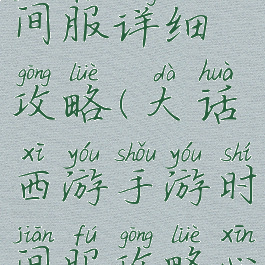 间服详细
gōng lüè dà huà
攻略(大话
xī yóu shǒu yóu shí
西游手游时
jiān fú gōng lüè xīn
间服攻略心